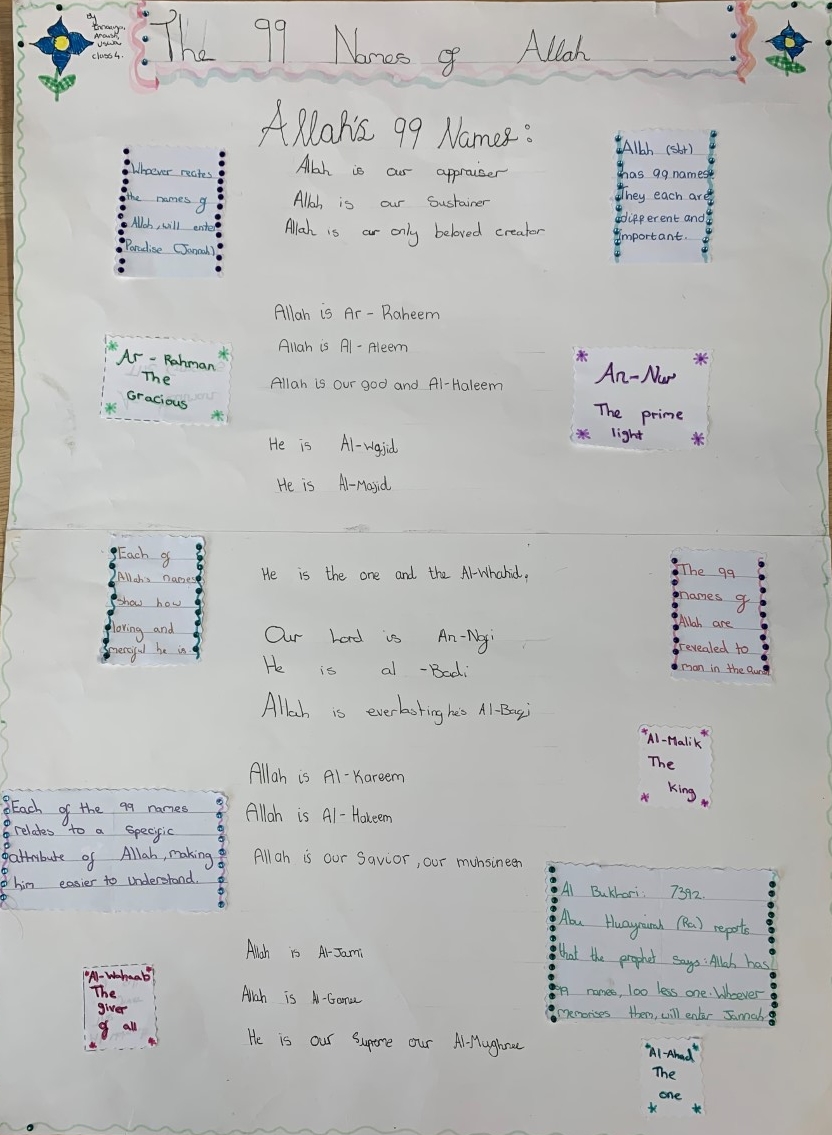 By
Class 4.
The 99 Names of Allah
Allah's 99 Names:
Whoever recites
the names of
Allah, will enter
Paradise (Jannah)
Allah is our appraiser
Allah is our Sustainer
Allah is our only beloved creator
Allah (sbt)
has 99 names
They each are
different and
important.
Allah is Ar - Raheem
Allah is Al - Aleem
Allah is our god and Al-Haleem
Ar - Rahman
The
Gracious
An-Nur
The prime
light
He is Al-Wajid
He is Al-Majid
Each of
Allah's names
show how
loving and
merciful he is.
He is the one and the Al-Whahid,
Our Lord is An-Nafi
He is al -Badi
Allah is everlasting he's Al-Baqi
The 99
names of
Allah are
revealed to
man in the
Al-Malik
The
King
Allah is Al-Kareem
Allah is Al- Hakeem
Allah is our Savior, our muhsineen
Each of the 99 names
relates to a specific
attribute of Allah, making
him easier to understand.
Al Bukhari: 7392.
Abu (Ra) reports
that the prophet says: Allah has
99 names, 100 less one. Whoever
memorises them, will enter Jannah.
Allah is Al-Jami
Allah is
He is our Supreme our
Al-Wahaab
The
giver
of all
Al-Ahad
The
one